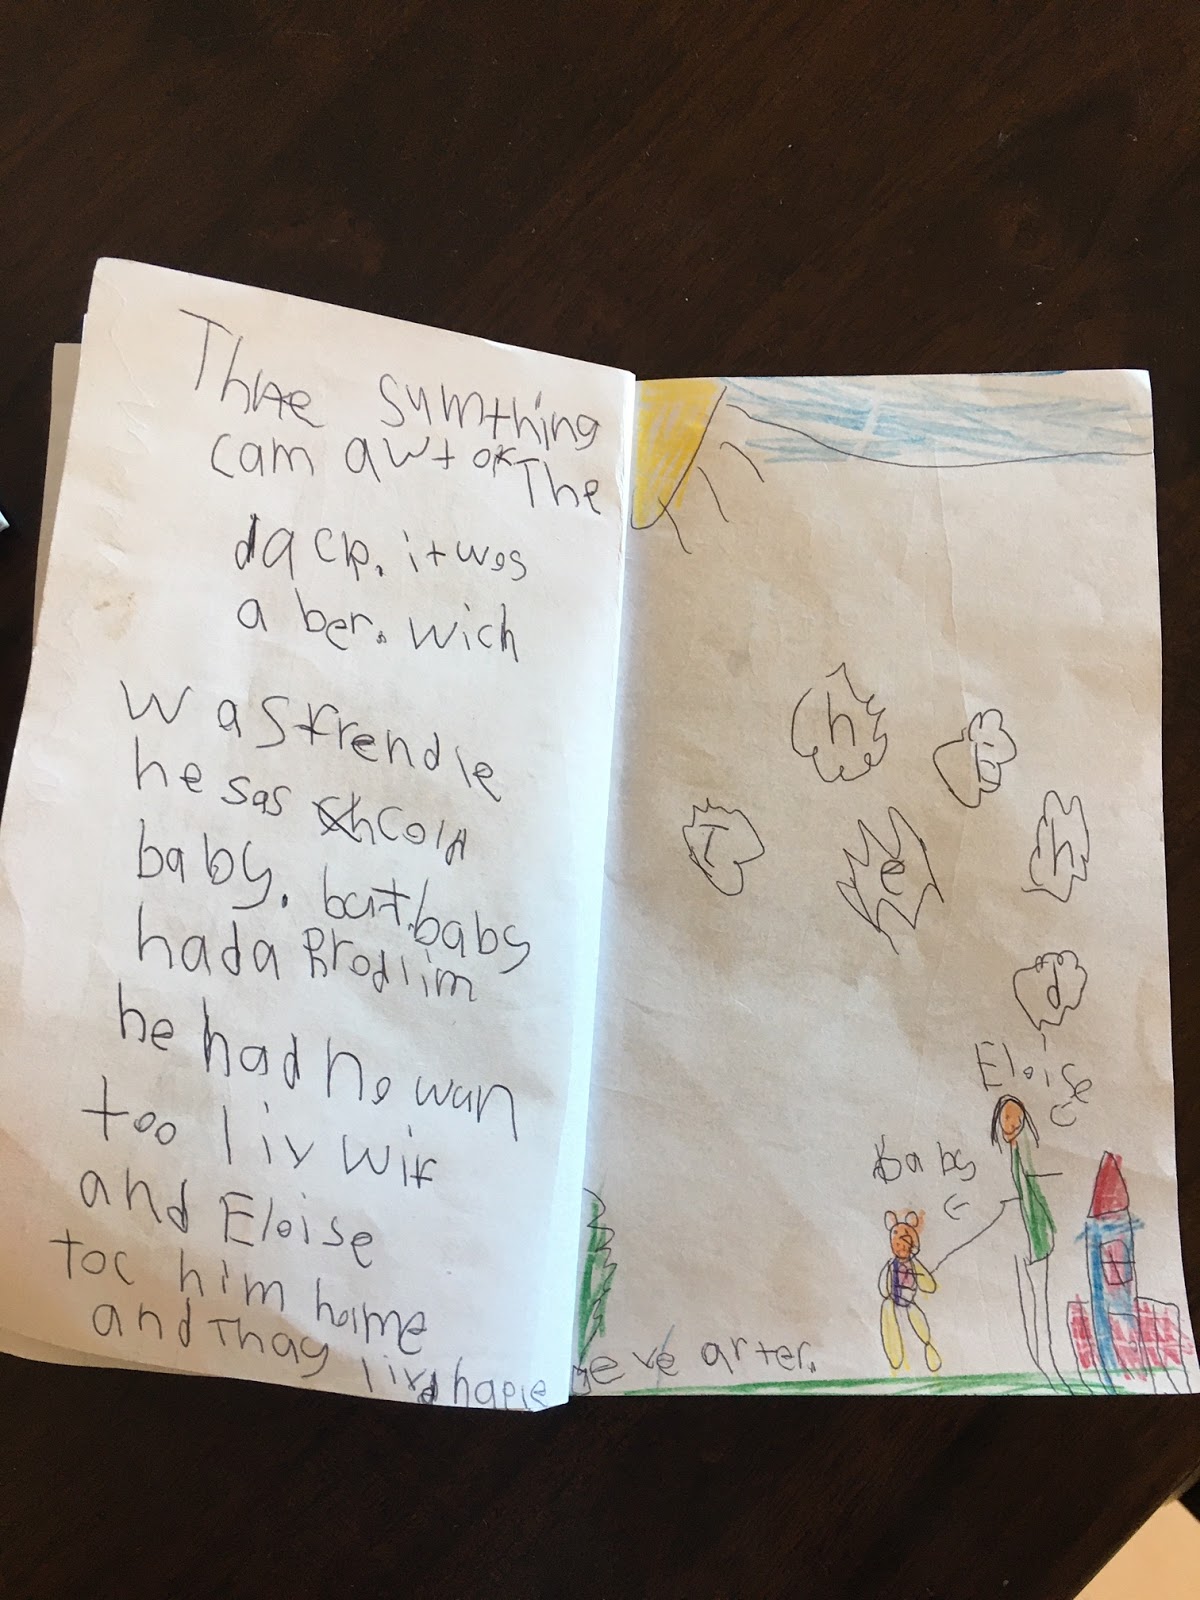 Thhe sumthing
cam awt ok The
dack. it was
a ber. wich
was frendle
he sas cold
baby. but baby
had a Brodlim
he had no wan
too liv wit
and Eloise
toc him home
and Thay livd hapie eve arter.
T h e
e n d
Eloise
Baby